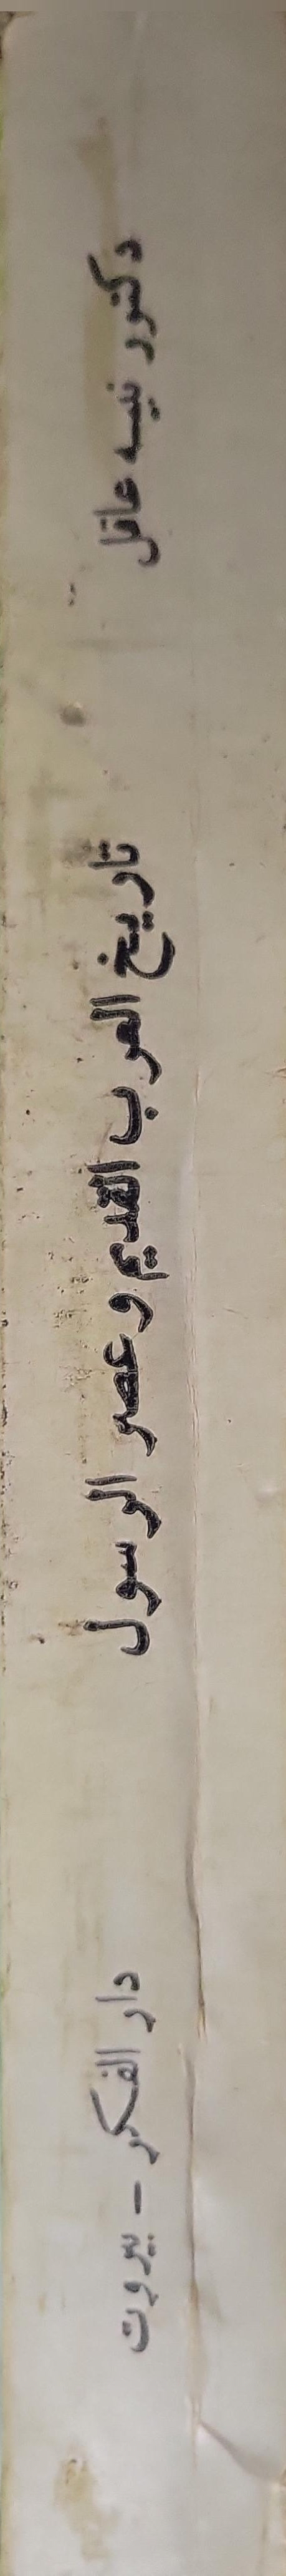 دكتور نبيه عاقل
تاريخ العرب القديم وعصر الرسول
دار الفكر - بيروت